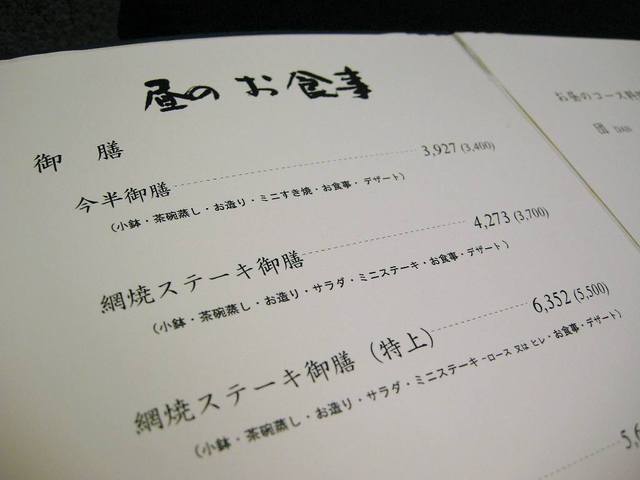 昼の お食事
御 膳
今半御膳 3,927 (3,400)
（小鉢・茶碗蒸し・お造り・ミニすき焼・お食事・デザート）
網焼ステーキ御膳 4,273 (3,700)
（小鉢・茶碗蒸し・お造り・サラダ・ミニステーキ・お食事・デザート）
網焼ステーキ御膳（特上） 6,352 (5,500)
（小鉢・茶碗蒸し・お造り・サラダ・ミニステーキ-ロース 又は ヒレ・お食事・デザート）
お昼のコース料
団 DAN